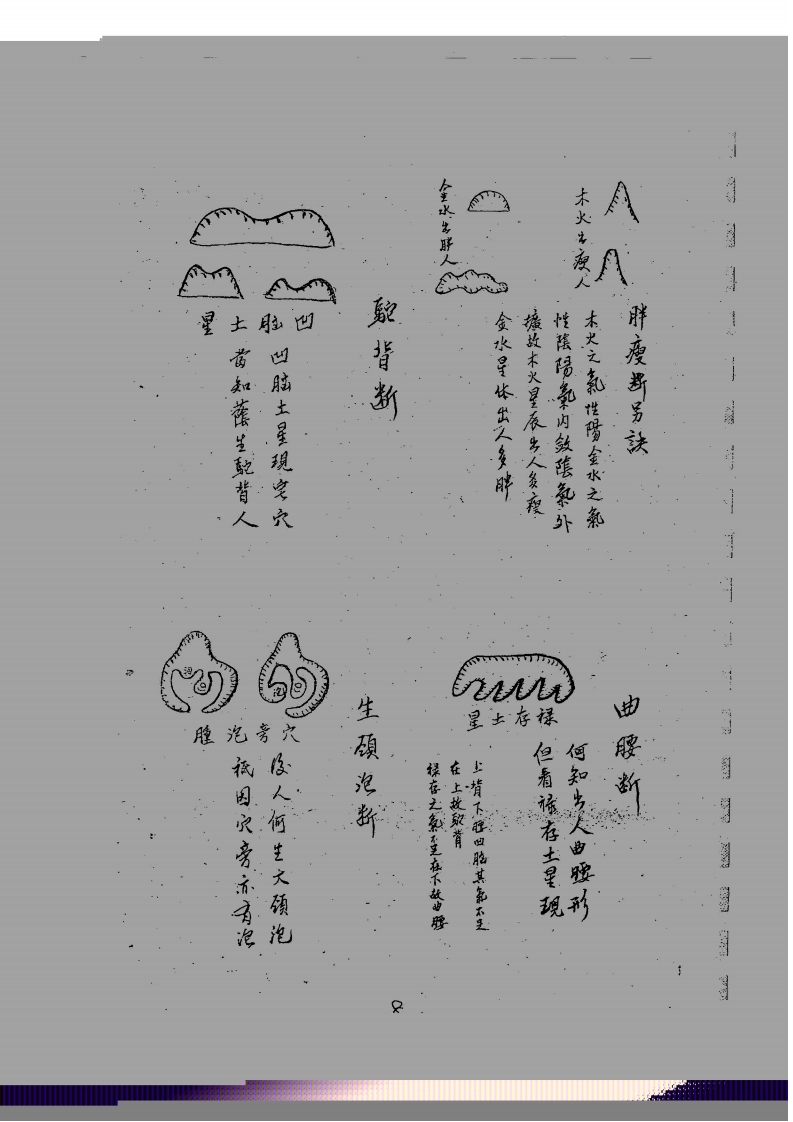 胖瘦斷另訣
木火出瘦人
金水出胖人
木火之氣性陽金水之氣
性陰陽氣内斂陰氣外
擴故木火星辰出人多瘦
金水星体出人多胖
駝背断
凹脑土星
凹脑土星現宅穴
當知蔭生駝背人
曲腰断
禄存土星
何知出人曲腰形
但看禄存土星現
上背下腰凹脑其氣不足
在上故駝背
禄存之氣不足在下故曲腰
生頸泡断
穴旁泡腫
後人何生大頸泡
祇因穴旁亦有泡
泡
泡
8